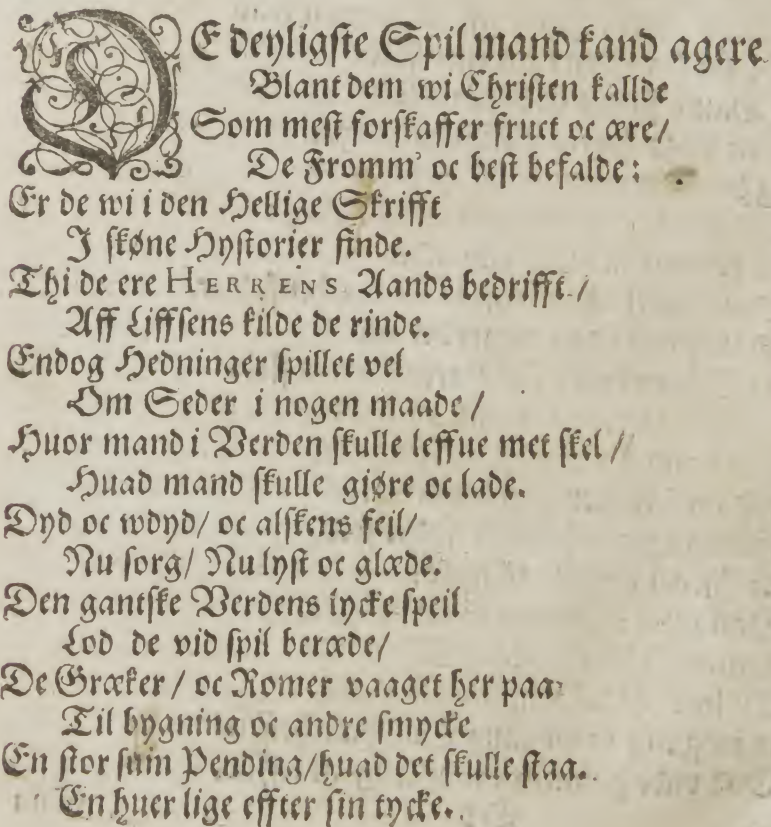 DE deyligste Spil mand kand agere
Blant dem wi Christen kallde
Som mest forskaffer fruct oc ære/
De Fromm' oc best befalde:
Er de wi i den Hellige Skrifft
I skøne Hystorier finde.
Thi de ere HERRENS Aands bedrifft/
Aff Liffsens kilde de rinde.
Endog Hedninger spillet vel
Om Seder i nogen maade/
Huor mand i Verden skulle leffue met skel/
Huad mand skulle giøre oc lade.
Dyd oc wdyd/ oc alskens feil/
Nu sorg/ Nu lyst oc glæde.
Den gantske Verdens lycke speil
Lod de vid spil beræde/
De Græker/ oc Romer vaaget her paa
Til bygning oc andre smycke
En stor sum Pending/huad det skulle staa.
En huer lige effter sin tycke.